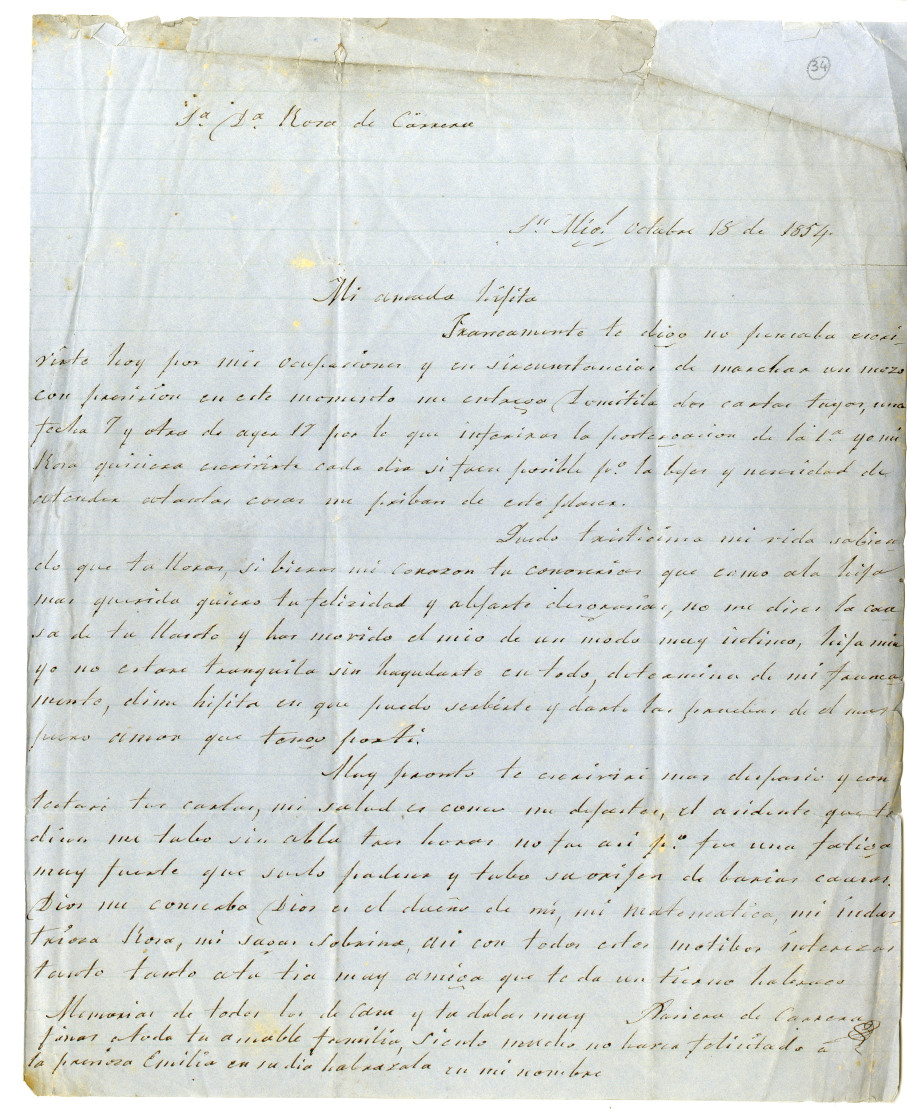 34
Sª Dª Rosa de Carrera
Sn Migl. Octubre 18 de 1854.
Mi amada hijita
Francamente te digo no pensaba escri-
virte hoy por mis ocupasiones y en sircunstancias de marchar un mozo
con presision en este momento me entrega Domitila dos cartas tuyas, una
fecha 7 y otra de ayer 17 por lo que inferiras la postergasion de la 1ª yo mi
Rosa quisiera escrivirte cada dia si fuera posible pº la bejes y nesesidad de
atender atantas cosas me priban de este plaser.
Quedo tristicima mi vida sabien-
do que tu lloras, si bieras mi corazon tu conoserias que como ala hija
mas querida quiero tu felizidad y alejarte desgrasias, no me dises la cau-
sa de tu llanto y has movido el mio de un modo muy intimo, hija mia
yo no estare tranquila sin hayudarte en todo, determina de mi franca-
mente, dime hijita en que puedo serbirte y darte las pruebas de el mas
puro amor que tengo porti.
Muy pronto te escriviré mas despasio y con
testaré tus cartas, mi salud es como me dejastes, el asidente que te
dicen me tubo sin abla tres horas no fue asi pº fue una fatiga
muy fuerte que suelo padeser y tubo su orijen de barias causas.
Dios me conserba Dios es el dueño de mi, mi matematica, mi indus-
triosa Rosa, mi sagas sobrina, asi con todos estos motibos interezas
tanto tanto atu tia muy amiga que te da un tierno habrazo
Memorias de todos los de casa y tu dalas muy
Rariera de Carrera
finas atoda tu amable familia, siento mucho no haver felicitado á
la presiosa Emilia en su dia habrazala en mi nombre